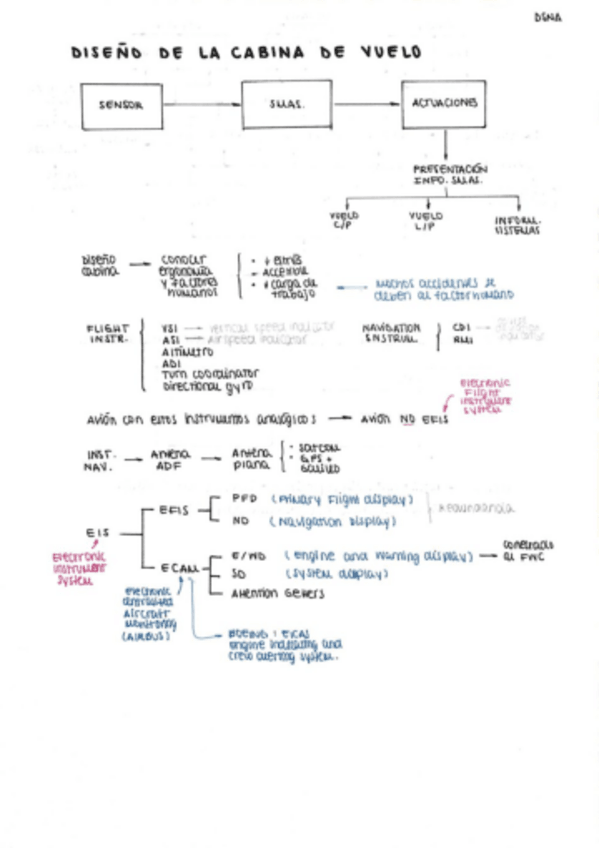 DENA
DISEÑO DE LA CABINA DE VUELO
SENSOR
SMAS.
ACTUACIONES
PRESENTACIÓN
INFO. SMAS.
VUELO
C/P
VUELO
L/P
INFORM.
SISTEMAS
Diseño
cabina
conocer
ergonomía
y factores
humanos
· ↓ estrés
- Accesible
· ↓ carga de
trabajo
Muchos accidentes se
deben al factor humano
FLIGHT
INSTR.
VSI → vertical speed indicator
ASI → Airspeed indicator
Altímetro
ADI
Turn coordinator
Directional gyro
NAVIGATION
INSTRUM.
CDI
RMI
Electronic
Flight
Instrument
system
Avión con estos instrumentos analógicos → Avión NO EFIS
INST.
NAV.
Antena
ADF
Antena
plana
· satcom
· GPS +
Galileo
EIS
Electronic
instrument
system
EFIS
PFD (Primary Flight display)
ND (Navigation display)
Redundancia
ECAM
E/WD (engine and warning display) → conectado
al FWC
SD (system display)
Attention Getters
electronic
centralised
Aircraft
monitoring
(AIRBUS)
BOEING: EICAS
engine indicating and
crew alerting system.